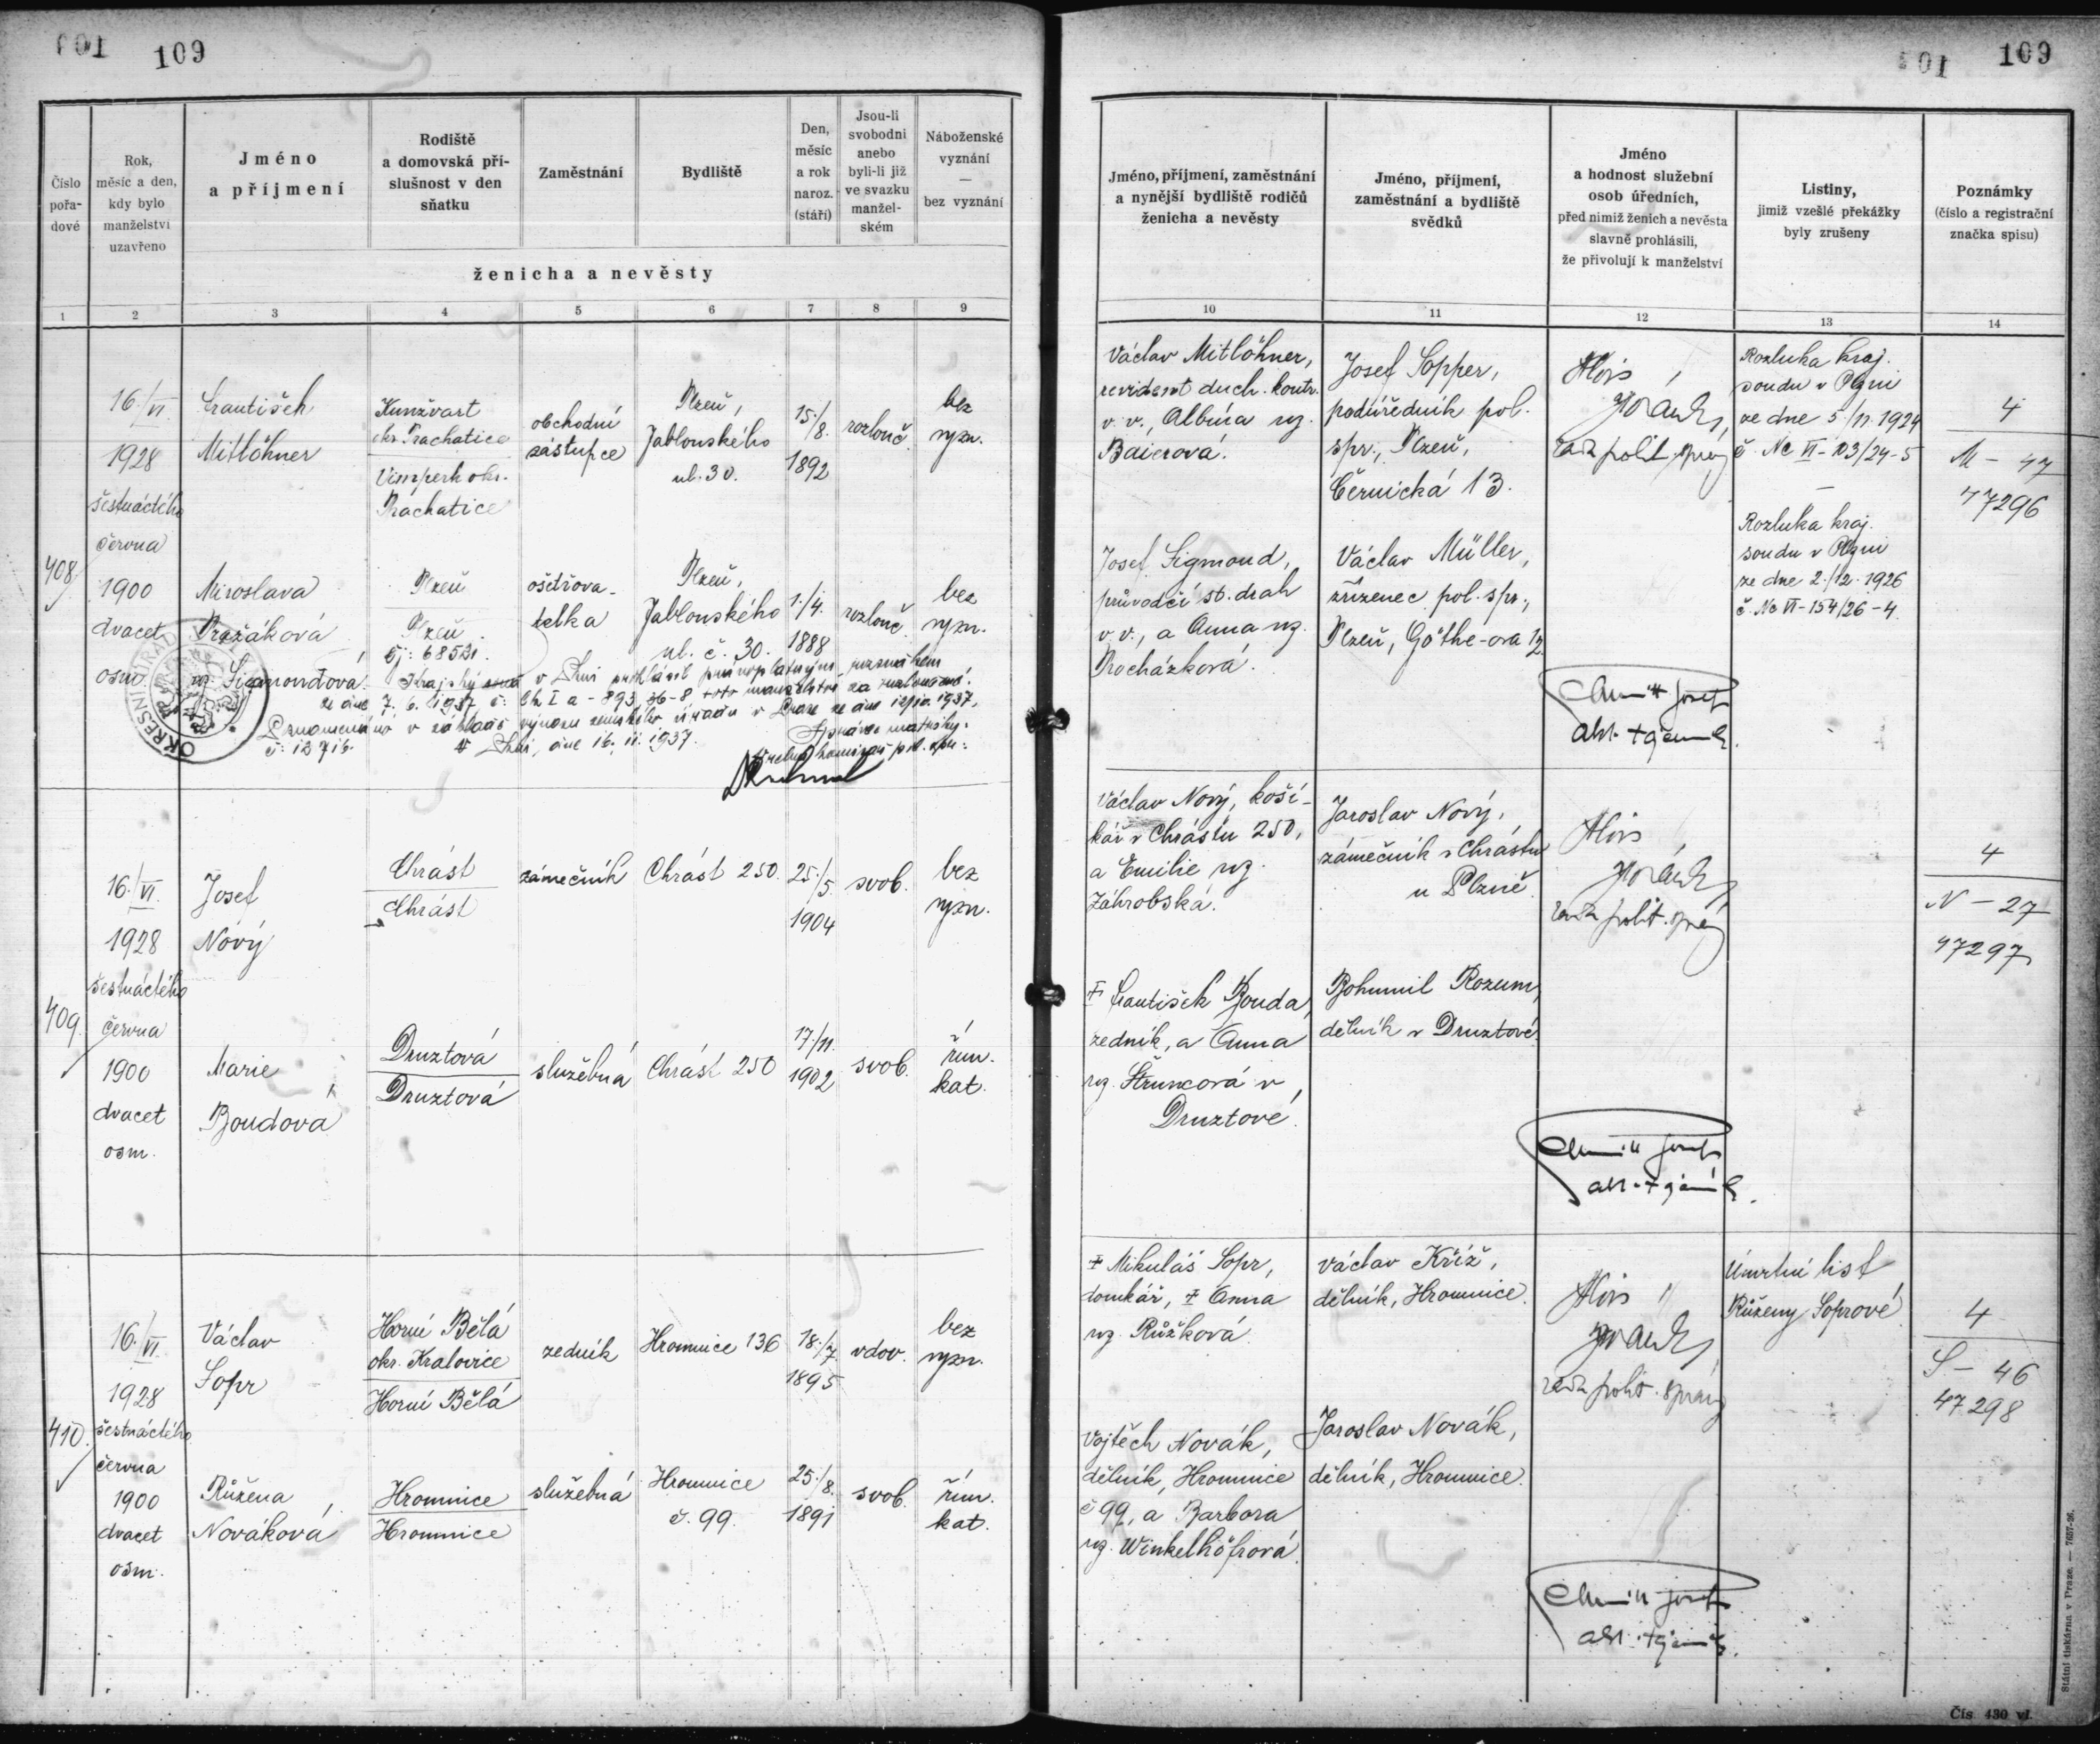 109
109
Číslo
pořa-
dové
Rok,
měsíc a den,
kdy bylo
manželství
uzavřeno
Jméno
a příjmení
Rodiště
a domovská pří-
slušnost v den
sňatku
Zaměstnání
Bydliště
Den,
měsíc
a rok
naroz.
(stáří)
Jsou-li
svobodni
anebo
byli-li již
ve svazku
manžel-
ském
Náboženské
vyznání
—
bez vyznání
ženicha a nevěsty
1 2 3 4 5 6 7 8 9
Jméno, příjmení, zaměstnání
a nynější bydliště rodičů
ženicha a nevěsty
Jméno, příjmení,
zaměstnání a bydliště
svědků
Jméno
a hodnost služební
osob úředních,
před nimiž ženich a nevěsta
slavně prohlásili,
že přivolují k manželství
Listiny,
jimiž vzešlé překážky
byly zrušeny
Poznámky
(číslo a registrační
značka spisu)
10 11 12 13 14
408
16./VI.
1928
šestnáctého
června
1900
dvacet
osm
František
Mitlöhner
Kunžvart
okr. Prachatice
Vimperk okr.
Prachatice
obchodní
zástupce
Plzeň,
Jablonského
ul. 30.
15./
8.
1892
rozlouč.
bez
vyzn.
Miroslava
Pražáková
roz. Sigmondová.
Plzeň
Plzeň
čj: 68521.
ošetřova-
telka
Plzeň,
Jablonského
ul. č. 30.
1./4.
1888
rozlouč.
bez
vyzn.
Krajský soud v Plzni prohlásil
ze dne 7. 6. 1937, č: Ck I a - 893/36-8 toto manželství za rozloučené.
Poznamenáno v základě výnosu zemského úřadu v Praze ze dne
V Plzni, dne 16. 11. 1937.
Správce matriky:
OKRESNÍ ÚŘAD
Václav Mitlöhner,
revident důch. kontr.
v. v., Albína roz.
Baierová.
Josef Sopper,
podúředník pol.
spr., Plzeň,
Černická 13.
Alois
rada polit. správy
Rozluka kraj.
soudu v Plzni
ze dne 5./11. 1924
č. Nc VI-103/24-5
—
4
M - 47
47296
Josef Sigmond,
průvodčí st. drah
v. v., a Anna roz.
Procházková.
Václav Müller,
zřízenec pol. spr.,
Plzeň, Göthe-ova 12.
Rozluka kraj.
soudu v Plzni
ze dne 2./12. 1926
č. Nc VI-154/26-4.
Josef
409.
16./VI.
1928
šestnáctého
června
1900
dvacet
osm.
Josef
Nový
Chrást
Chrást
zámečník
Chrást 250.
25./
5.
1904
svob.
bez
vyzn.
Marie
Boudová
Druztová
Druztová
služebná
Chrást 250
17./11.
1902
svob.
řím.
kat.
Václav Nový, koší-
kář v Chrástu 250,
a Emilie roz.
Záhrobská.
Jaroslav Nový,
zámečník v Chrástu
u Plzně.
Alois
rada polit. správy
4
N - 27
47297
† František Bouda,
zedník, a Anna
roz. Štruncová v
Druztové.
Bohumil Rozum,
dělník v Druztové.
Josef
410.
16./VI.
1928
šestnáctého
června
1900
dvacet
osm.
Václav
Sopr
Horní Bělá
okr. Kralovice
Horní Bělá
zedník
Hromnice 136
18./
7.
1895
vdov.
bez
vyzn.
Růžena
Nováková
Hromnice
Hromnice
služebná
Hromnice
č. 99.
25./8.
1891
svob.
řím.
kat.
† Mikuláš Sopr,
domkář, † Anna
roz. Růžková.
Václav Kříž,
dělník, Hromnice.
Alois
rada polit. správy
Úmrtní list
Růženy Soprové
4
S - 46
47298
Vojtěch Novák,
dělník, Hromnice
č 99, a Barbora
roz. Winkelhöfrová.
Jaroslav Novák,
dělník, Hromnice.
Josef
Státní tiskárna v Praze. — 7657-26.
Čís. 430 vl.